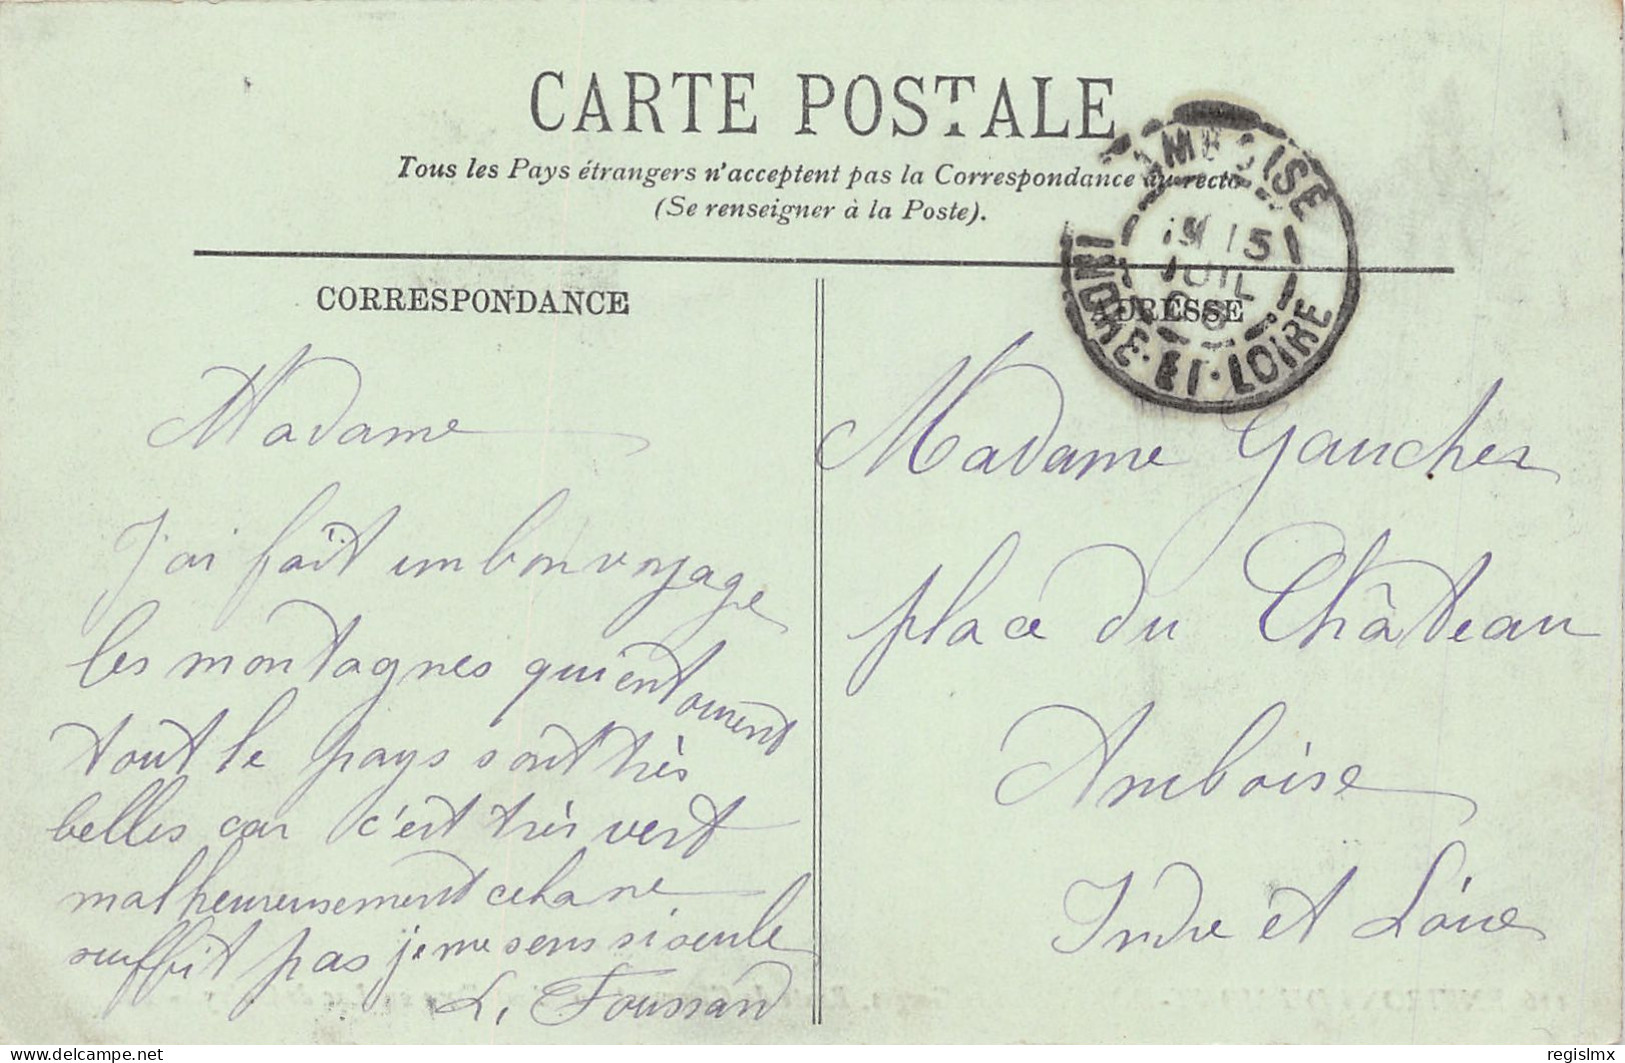 CARTE POSTALE
Tous les Pays étrangers n'acceptent pas la Correspondance au recto
(Se renseigner à la Poste).
CORRESPONDANCE
Madame
J'ai fait un bon voyage
les montagnes qui entourent
tout le pays sont très
belles car c'est très vert
malheureusement cela ne
suffit pas je me sens si seule
L. Foussard
ADRESSE
Madame Gaucher
place du Château
Amboise
Indre et Loire
AMBOISE
15
JUIL
INDRE-ET-LOIRE
delcampe.net
regislmx